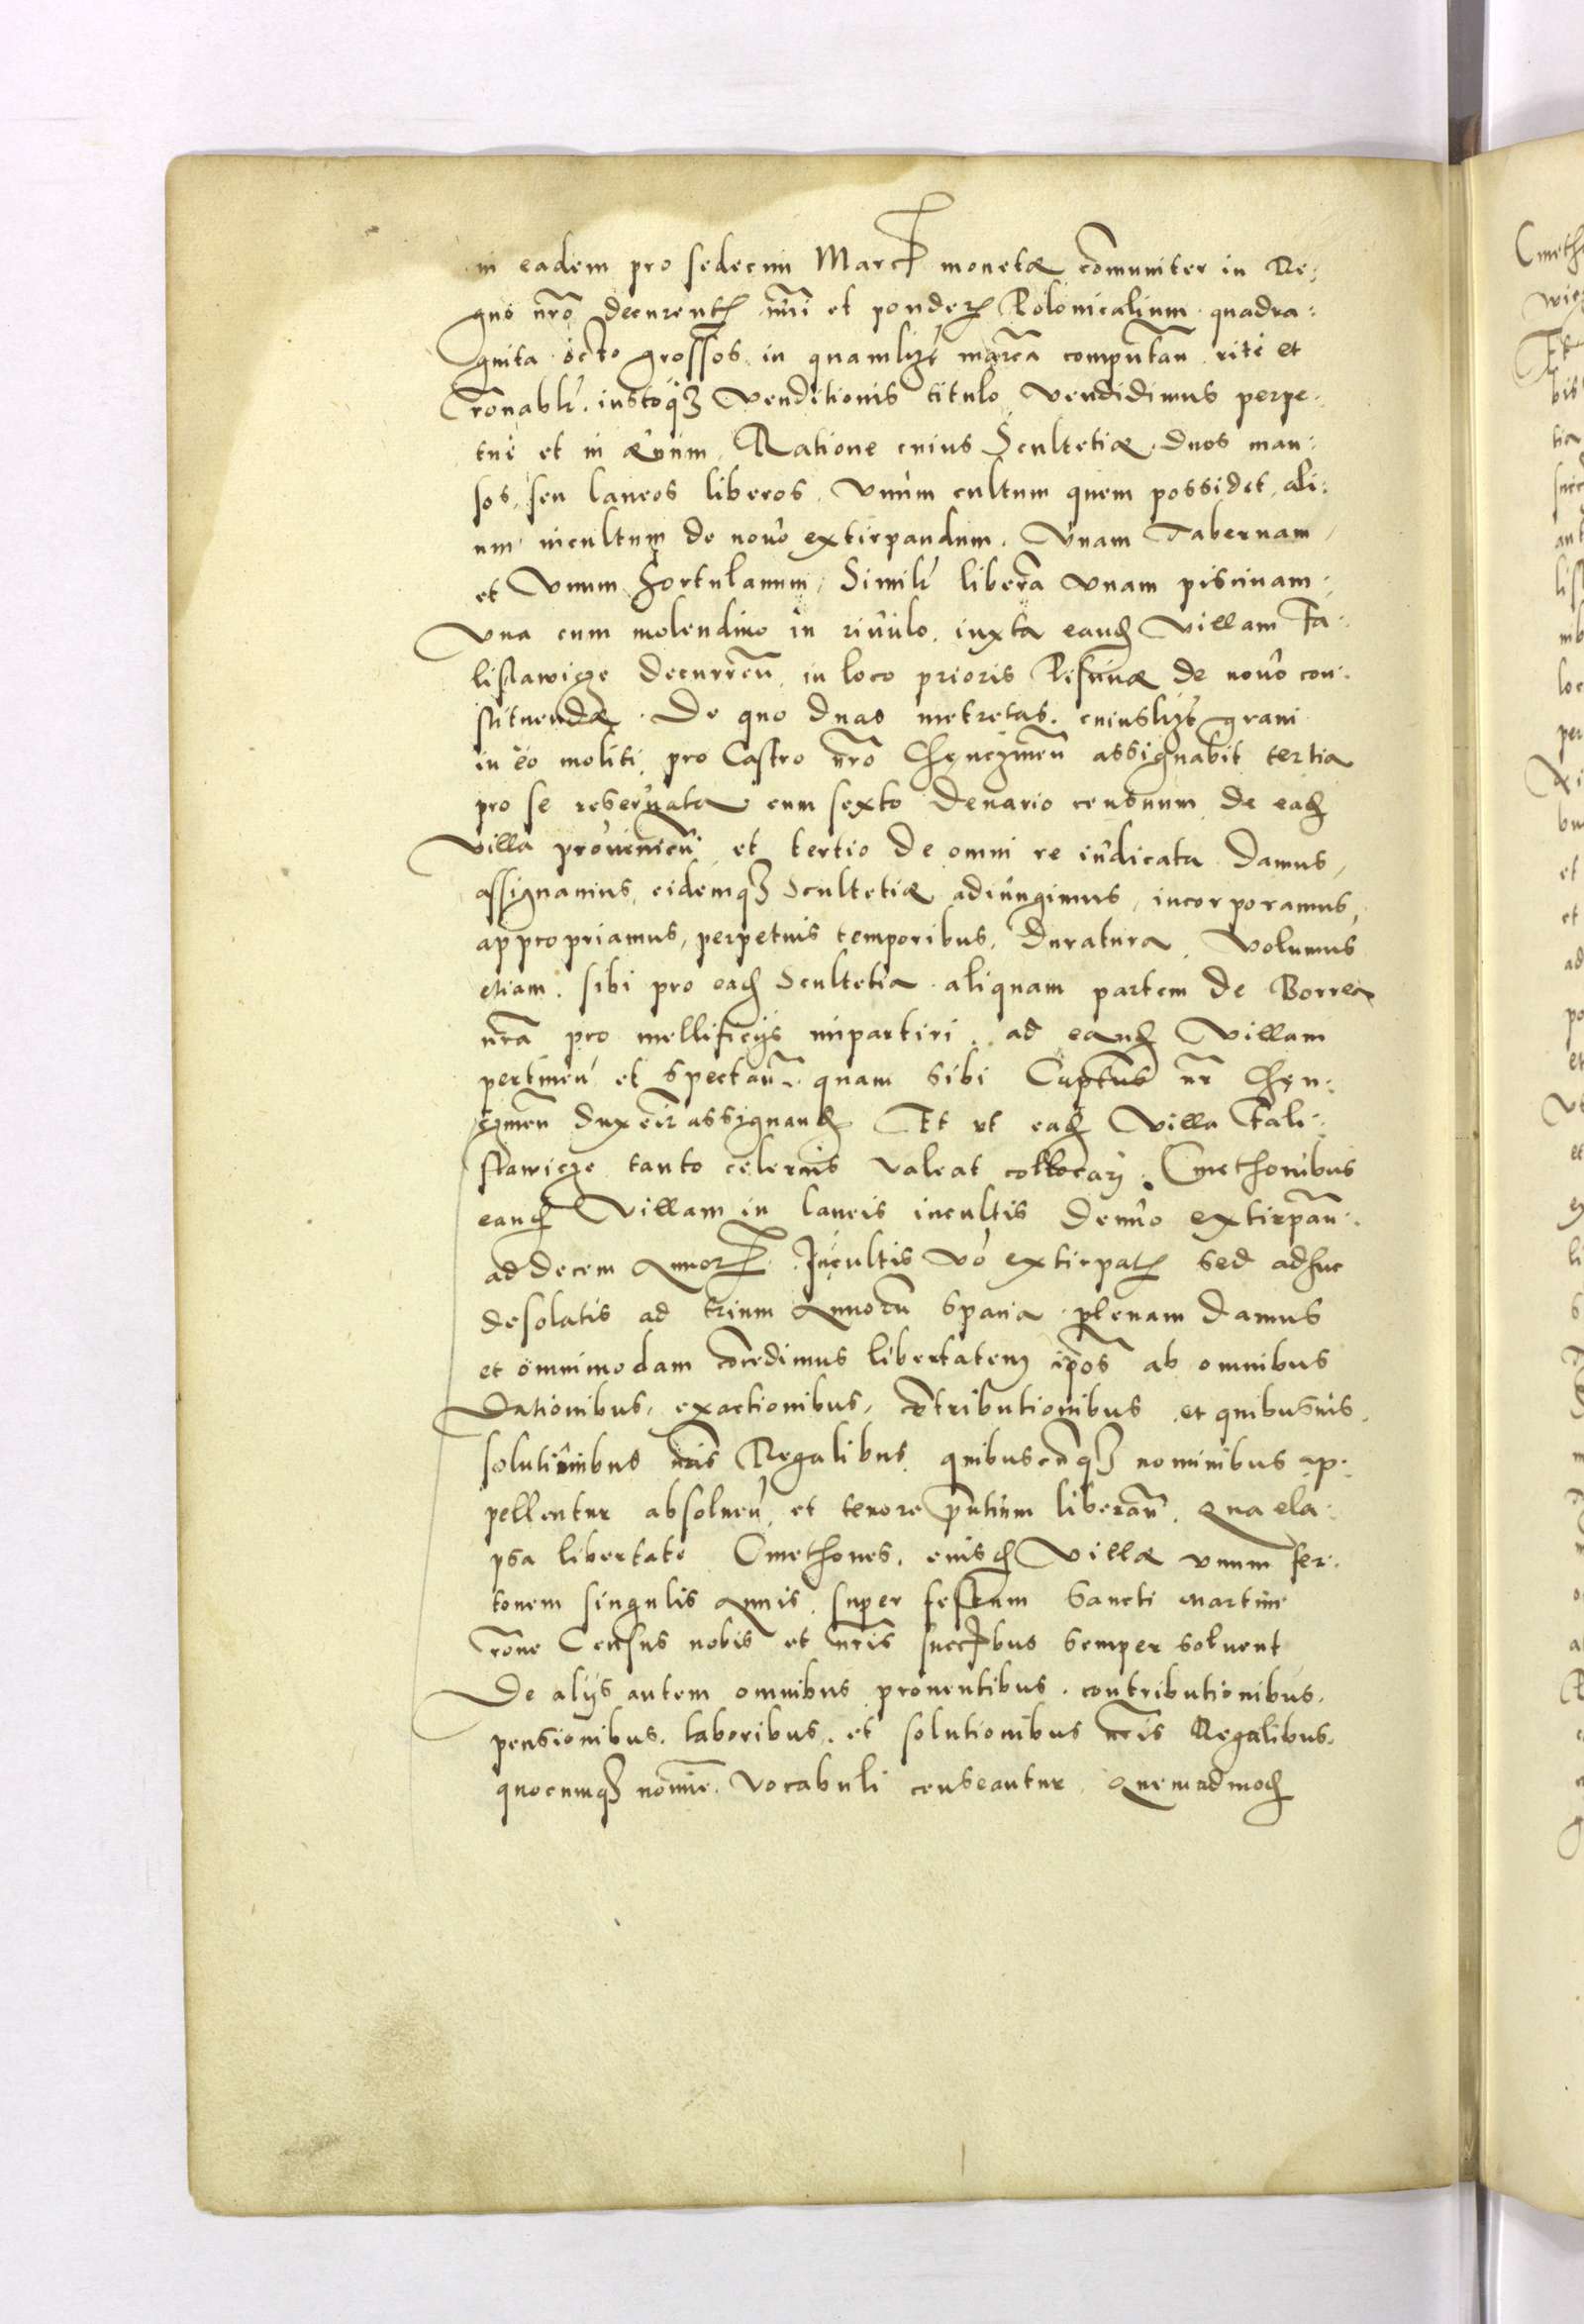 in eadem pro sedecim Marcꝝ monetæ com̄uniter in Re:
gno nr̄o decurentꝭ nr̄i et ponderꝭ Polonicalium quadra:
ginta octo grossos in quamlꝫt marcā computan̄ rite et
rōnabilr̄ iustoqꝫ venditionis titulo vendidimus perpe:
tuè et in æuum Ratione cuius Scultetiæ duos man:
sos seu laneos liberos, vnum cultum quem possidet ali:
um incultum de nouo extirpandum. Vnam Tabernam
et Vnum Hortulanum, Similr̄ liberā vnam piscinam
Vna cum molendino in riuulo iuxta eandꝫ villam Fa:
lislawicze decurren̄ in loco prioris Piscinæ de nouo con:
stituendæ. De quo duas metretas cuiuslꝫt grani
in eo moliti, pro Castro nr̄o Chęnczinen̄ assignabit tertia
pro se reseruata cum sexto denario censuum de eadꝫ
villa prouenien̄ et tertio de omni re iudicata Damus,
assignamus, eidemqꝫ Scultetiæ adiungimus, incorporamus,
appropriamus, perpetuis temporibus, duratura. Volumus
etiam sibi pro eadꝫ Scultetia aliquam partem de Borrea
nr̄a pro mellificijs impartiri ad eandꝫ villam
pertinen̄ et spectan̄ quam sibi Captn̄s nr̄ Chęn:
czinen̄ duxerit assignandꝫ Et vt eadꝫ Villa Fali:
slawicze tanto celerius valeat collocarj Cmethonibus
eandꝫ Villam in laneis incultis denuo extirpan̄
ad decem Annorꝝ. Incultis vō extirpatꝭ sed adhuc
desolatis ad trium Annorū spacia plenam damus
et omnimodam cōcedimus libertatem ip̄os ab omnibus
Dationibus, exactionibus, cōtributionibus et quibusuis
solutiōnibus nr̄is Regalibus quibuscūqꝫ nominibus ap:
pellentur absoluen̄ et tenore p̄ntium liberan̄. Qua ela:
psa libertate Cmethones eiusdꝫ Villæ vnum fer:
tonem singulis Annis super festum Sancti Martini
rōne Census nobis et nr̄is succꝝbus semper soluent
De alijs autem omnibus prouentibus. contributionibus,
pensionibus. laboribus. et solutionibus nr̄is Regalibus.
quocumqꝫ nomīe Vocabuli censeantur Quemadmodꝫ